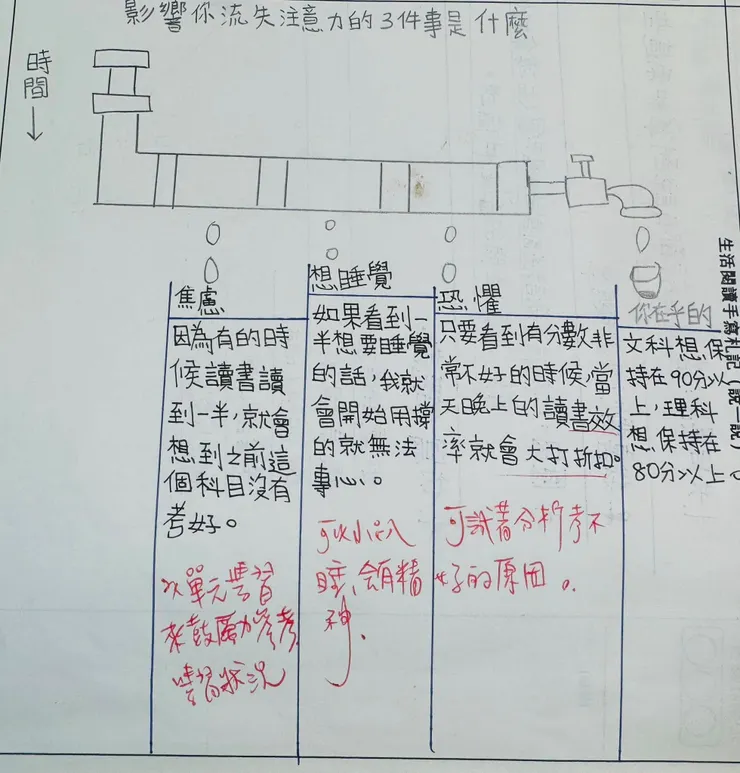 影響你流失注意力的3件事是什麼
時間
↓
焦慮
因為有的時
候讀書讀
到一半,就會
想到之前這
個科目沒有
考好。
以單元學習
來鼓勵參考
學習狀況
想睡覺
如果看到一
半想要睡覺
的話,我就
會開始用撐
的就無法
專心。
可以小趴
睡,會有精
神.
恐懼
只要看到有分數非
常不好的時候,當
天晚上的讀書效
率就會大打折扣。
可試著分析考不
好的原因。
你在乎的
文科想保
持在90分以
上,理科
想保持在
80分以上。
生活閱讀手寫札記(說一說)